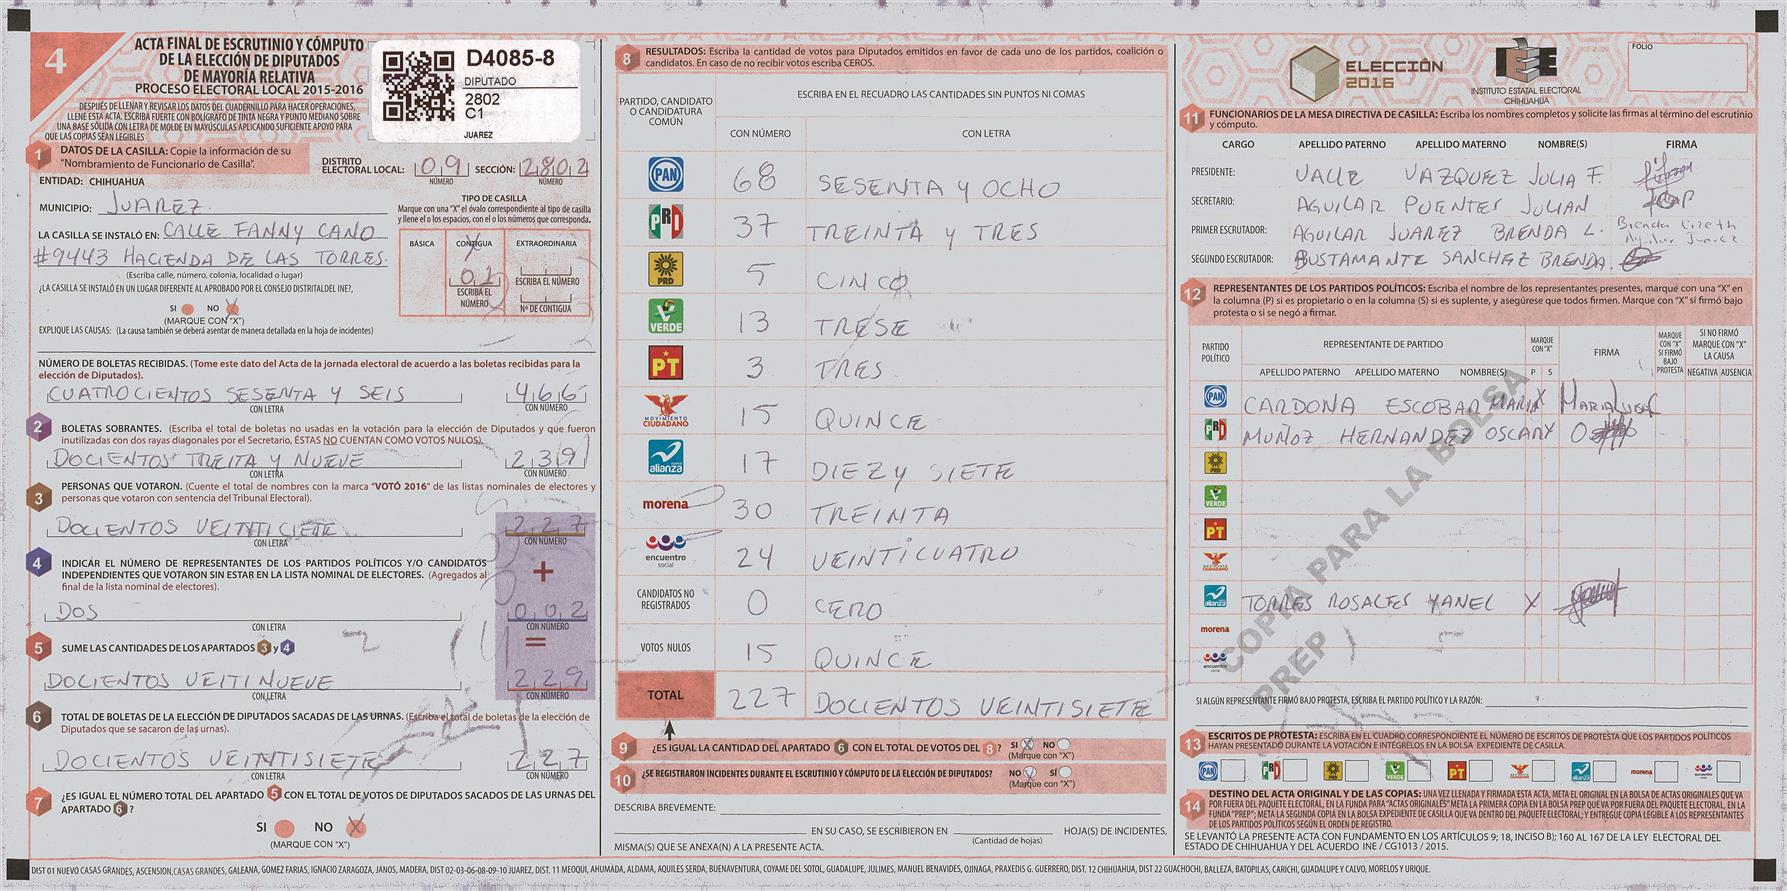 4
ACTA FINAL DE ESCRUTINIO Y CÓMPUTO
DE LA ELECCIÓN DE DIPUTADOS
DE MAYORÍA RELATIVA
PROCESO ELECTORAL LOCAL 2015-2016
DESPUÉS DE LLENAR Y REVISAR LOS DATOS DEL CUADERNILLO PARA HACER OPERACIONES,
LLENE ESTA ACTA. ESCRIBA FUERTE CON BOLÍGRAFO DE TINTA NEGRA Y PUNTO MEDIANO SOBRE
UNA BASE SÓLIDA CON LETRA DE MOLDE EN MAYÚSCULAS APLICANDO SUFICIENTE APOYO PARA
QUE LAS COPIAS SEAN LEGIBLES
D4085-8
DIPUTADO
2802
C1
JUAREZ
1 DATOS DE LA CASILLA: Copie la información de su
"Nombramiento de Funcionario de Casilla".
DISTRITO ELECTORAL LOCAL: 09 NÚMERO SECCIÓN: 2802 NÚMERO
ENTIDAD: CHIHUAHUA
MUNICIPIO: JUAREZ.
LA CASILLA SE INSTALÓ EN: CALLE FANNY CANO
#9443 HACIENDA DE LAS TORRES.
(Escriba calle, número, colonia, localidad o lugar)
¿LA CASILLA SE INSTALÓ EN UN LUGAR DIFERENTE AL APROBADO POR EL CONSEJO DISTRITAL DEL INE?,
SI NO X
(MARQUE CON "X")
EXPLIQUE LAS CAUSAS: (La causa también se deberá asentar de manera detallada en la hoja de incidentes)
TIPO DE CASILLA
Marque con una "X" el óvalo correspondiente al tipo de casilla
y llene el o los espacios, con el o los números que corresponda.
BÁSICA CONTIGUA EXTRAORDINARIA
X
01
ESCRIBA EL NÚMERO
ESCRIBA EL NÚMERO
Nº DE CONTIGUA
NÚMERO DE BOLETAS RECIBIDAS. (Tome este dato del Acta de la jornada electoral de acuerdo a las boletas recibidas para la
elección de Diputados).
CUATROCIENTOS SESENTA Y SEIS 466
CON LETRA CON NÚMERO
2 BOLETAS SOBRANTES. (Escriba el total de boletas no usadas en la votación para la elección de Diputados y que fueron
inutilizadas con dos rayas diagonales por el Secretario, ÉSTAS NO CUENTAN COMO VOTOS NULOS).
DOCIENTOS TREITA Y NUEVE 239
CON LETRA CON NÚMERO
3 PERSONAS QUE VOTARON. (Cuente el total de nombres con la marca "VOTÓ 2016" de las listas nominales de electores y
personas que votaron con sentencia del Tribunal Electoral).
DOCIENTOS VEINTICIETE 227
CON LETRA CON NÚMERO
4 INDICAR EL NÚMERO DE REPRESENTANTES DE LOS PARTIDOS POLÍTICOS Y/O CANDIDATOS
INDEPENDIENTES QUE VOTARON SIN ESTAR EN LA LISTA NOMINAL DE ELECTORES. (Agregados al
final de la lista nominal de electores).
+
DOS 002
CON LETRA CON NÚMERO
5 SUME LAS CANTIDADES DE LOS APARTADOS 3 y 4 =
DOCIENTOS VEITINUEVE 229
CON LETRA CON NÚMERO
6 TOTAL DE BOLETAS DE LA ELECCIÓN DE DIPUTADOS SACADAS DE LAS URNAS. (Escriba el total de boletas de la elección de
Diputados que se sacaron de las urnas).
DOCIENTOS VEINTISIETE 227
CON LETRA CON NÚMERO
7 ¿ES IGUAL EL NÚMERO TOTAL DEL APARTADO 5 CON EL TOTAL DE VOTOS DE DIPUTADOS SACADOS DE LAS URNAS DEL
APARTADO 6?
SI NO X
(MARQUE CON "X")
8 RESULTADOS: Escriba la cantidad de votos para Diputados emitidos en favor de cada uno de los partidos, coalición o
candidatos. En caso de no recibir votos escriba CEROS.
PARTIDO, CANDIDATO
O CANDIDATURA
COMÚN
ESCRIBA EN EL RECUADRO LAS CANTIDADES SIN PUNTOS NI COMAS
CON NÚMERO CON LETRA
PAN 68 SESENTA Y OCHO
PRI 37 TREINTA Y TRES
PRD 5 CINCO
VERDE 13 TRESE
PT 3 TRES
MOVIMIENTO CIUDADANO 15 QUINCE
alianza 17 DIEZ Y SIETE
morena 30 TREINTA
encuentro social 24 VEINTICUATRO
CANDIDATOS NO REGISTRADOS 0 CERO
VOTOS NULOS 15 QUINCE
TOTAL 227 DOCIENTOS VEINTISIETE
9 ¿ES IGUAL LA CANTIDAD DEL APARTADO 6 CON EL TOTAL DE VOTOS DEL 8? SI X NO
(Marque con "X")
10 ¿SE REGISTRARON INCIDENTES DURANTE EL ESCRUTINIO Y CÓMPUTO DE LA ELECCIÓN DE DIPUTADOS? NO SÍ
(Marque con "X")
DESCRIBA BREVEMENTE:
EN SU CASO, SE ESCRIBIERON EN HOJA(S) DE INCIDENTES,
(Cantidad de hojas)
MISMA(S) QUE SE ANEXA(N) A LA PRESENTE ACTA.
ELECCIÓN
2016
IEE
INSTITUTO ESTATAL ELECTORAL
CHIHUAHUA
FOLIO
11 FUNCIONARIOS DE LA MESA DIRECTIVA DE CASILLA: Escriba los nombres completos y solicite las firmas al término del escrutinio
y cómputo.
CARGO APELLIDO PATERNO APELLIDO MATERNO NOMBRE(S) FIRMA
PRESIDENTE: VALLE VAZQUEZ JULIA F.
SECRETARIO: AGUILAR PUENTES JULIAN
PRIMER ESCRUTADOR: AGUILAR JUAREZ BRENDA L. Brenda Lizeth
Aguilar Juarez
SEGUNDO ESCRUTADOR: BUSTAMANTE SANCHEZ BRENDA.
12 REPRESENTANTES DE LOS PARTIDOS POLÍTICOS: Escriba el nombre de los representantes presentes, marque con una "X" en
la columna (P) si es propietario o en la columna (S) si es suplente, y asegúrese que todos firmen. Marque con "X" si firmó bajo
protesta o si se negó a firmar.
PARTIDO POLÍTICO
REPRESENTANTE DE PARTIDO
MARQUE CON "X"
FIRMA
MARQUE CON "X" SI FIRMÓ BAJO PROTESTA
SI NO FIRMÓ MARQUE CON "X" LA CAUSA
APELLIDO PATERNO APELLIDO MATERNO NOMBRE(S) P S NEGATIVA AUSENCIA
PAN CARDONA ESCOBAR MARIA X
PRI MUÑOZ HERNANDEZ OSCAR X
PRD
VERDE
PT
MOVIMIENTO CIUDADANO
alianza TORRES ROSALES YANEL X
morena
encuentro social
COPIA PARA LA BOLSA
PREP
SI ALGÚN REPRESENTANTE FIRMÓ BAJO PROTESTA, ESCRIBA EL PARTIDO POLÍTICO Y LA RAZÓN:
13 ESCRITOS DE PROTESTA: ESCRIBA EN EL CUADRO CORRESPONDIENTE EL NÚMERO DE ESCRITOS DE PROTESTA QUE LOS PARTIDOS POLÍTICOS
HAYAN PRESENTADO DURANTE LA VOTACIÓN E INTÉGRELOS EN LA BOLSA EXPEDIENTE DE CASILLA.
PAN PRI PRD VERDE PT MOVIMIENTO CIUDADANO alianza morena encuentro social
14 DESTINO DEL ACTA ORIGINAL Y DE LAS COPIAS: UNA VEZ LLENADA Y FIRMADA ESTA ACTA, META EL ORIGINAL EN LA BOLSA DE ACTAS ORIGINALES QUE VA
POR FUERA DEL PAQUETE ELECTORAL, EN LA FUNDA PARA "ACTAS ORIGINALES" META LA PRIMERA COPIA EN LA BOLSA PREP QUE VA POR FUERA DEL PAQUETE ELECTORAL, EN LA
FUNDA "PREP"; META LA SEGUNDA COPIA EN LA BOLSA EXPEDIENTE DE CASILLA QUE VA DENTRO DEL PAQUETE ELECTORAL; Y ENTREGUE COPIA LEGIBLE A LOS REPRESENTANTES
DE LOS PARTIDOS POLÍTICOS SEGÚN EL ORDEN DE REGISTRO.
SE LEVANTÓ LA PRESENTE ACTA CON FUNDAMENTO EN LOS ARTÍCULOS 9; 18, INCISO B); 160 AL 167 DE LA LEY ELECTORAL DEL
ESTADO DE CHIHUAHUA Y DEL ACUERDO INE / CG1013 / 2015.
DIST 01 NUEVO CASAS GRANDES, ASCENSION,CASAS GRANDES, GALEANA, GOMEZ FARIAS, IGNACIO ZARAGOZA, JANOS, MADERA, DIST 02-03-06-08-09-10 JUAREZ, DIST. 11 MEOQUI, AHUMADA, ALDAMA, AQUILES SERDA, BUENAVENTURA, COYAME DEL SOTOL, GUADALUPE, JULIMES, MANUEL BENAVIDES, OJINAGA, PRAXEDIS G. GUERRERO, DIST. 12 CHIHUAHUA, DIST 22 GUACHOCHI, BALLEZA, BATOPILAS, CARICHI, GUADALUPE Y CALVO, MORELOS Y URIQUE.